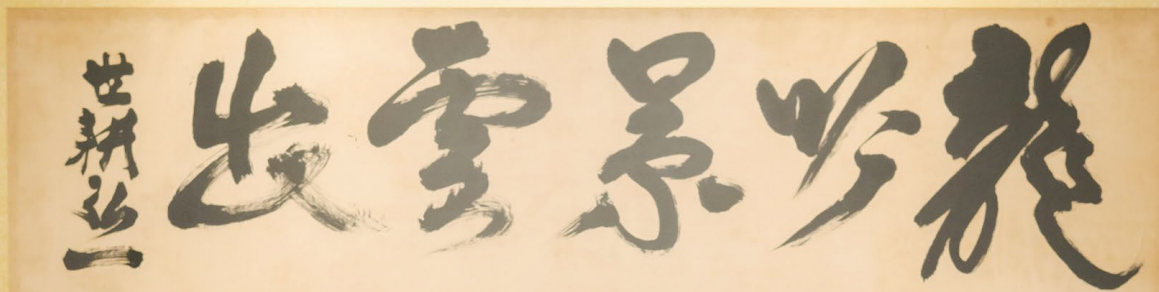 龍吟景雲出
世耕弘一